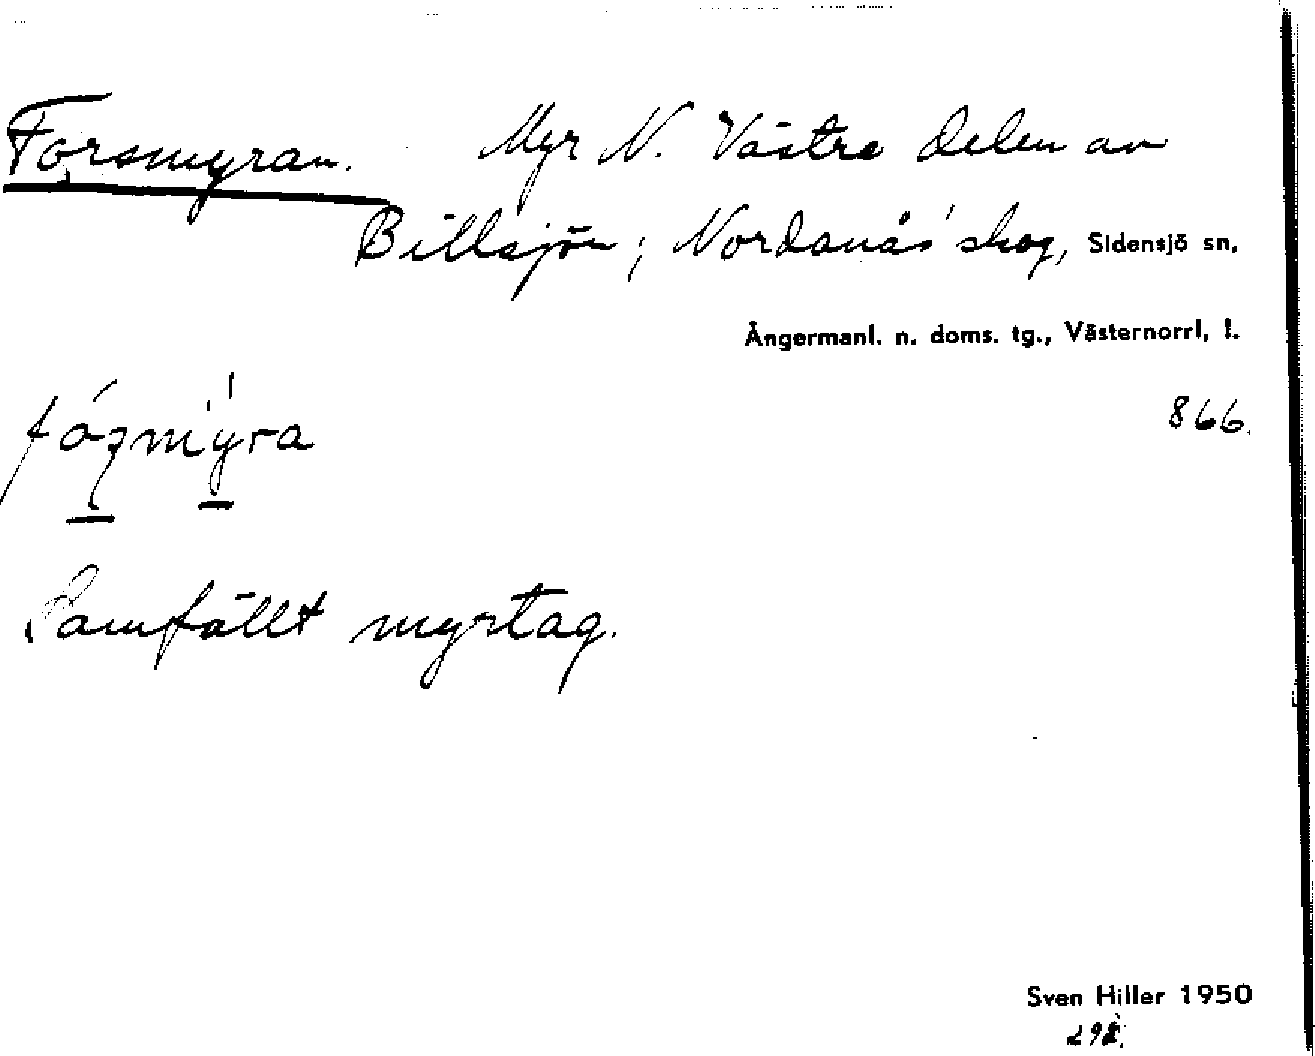 Forsmyran. Myr N. Västra delen av
Billsjön; Nordanås' skog, Sidensjö sn.
Ångermanl. n. doms. tg., Västernorrl. l.
866.
Samfällt myrtag.
Sven Hiller 1950